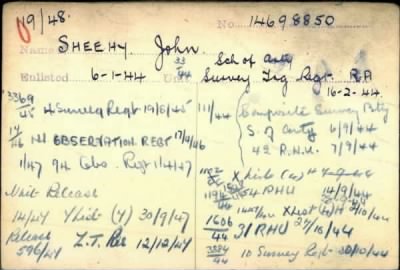 19/48.
No 14698850
Name SHEEHY. John.
33/44 Sch of Arty
Enlisted 6-1-44 Unit Survey Trg Regt. RA
16-2-44.
3369/45 4 Survey Regt 19/6/45
111/44 Composite Survey Bty
S. of Arty 6/9/44
14/46 OBSERVATION REGT 17/4/46
42 R.H.U. 7/9/44
1/47 94 Obs. Regt 1/4/47
X List
Unit Release
RHU 14/9/44
14/47 Y list (4) 30/9/47
X List
1606/44 31 RHU 27/10/44
Release
596/47 Z.T. Res 12/12/47
3384/44 10 Survey Regt 30/10/44